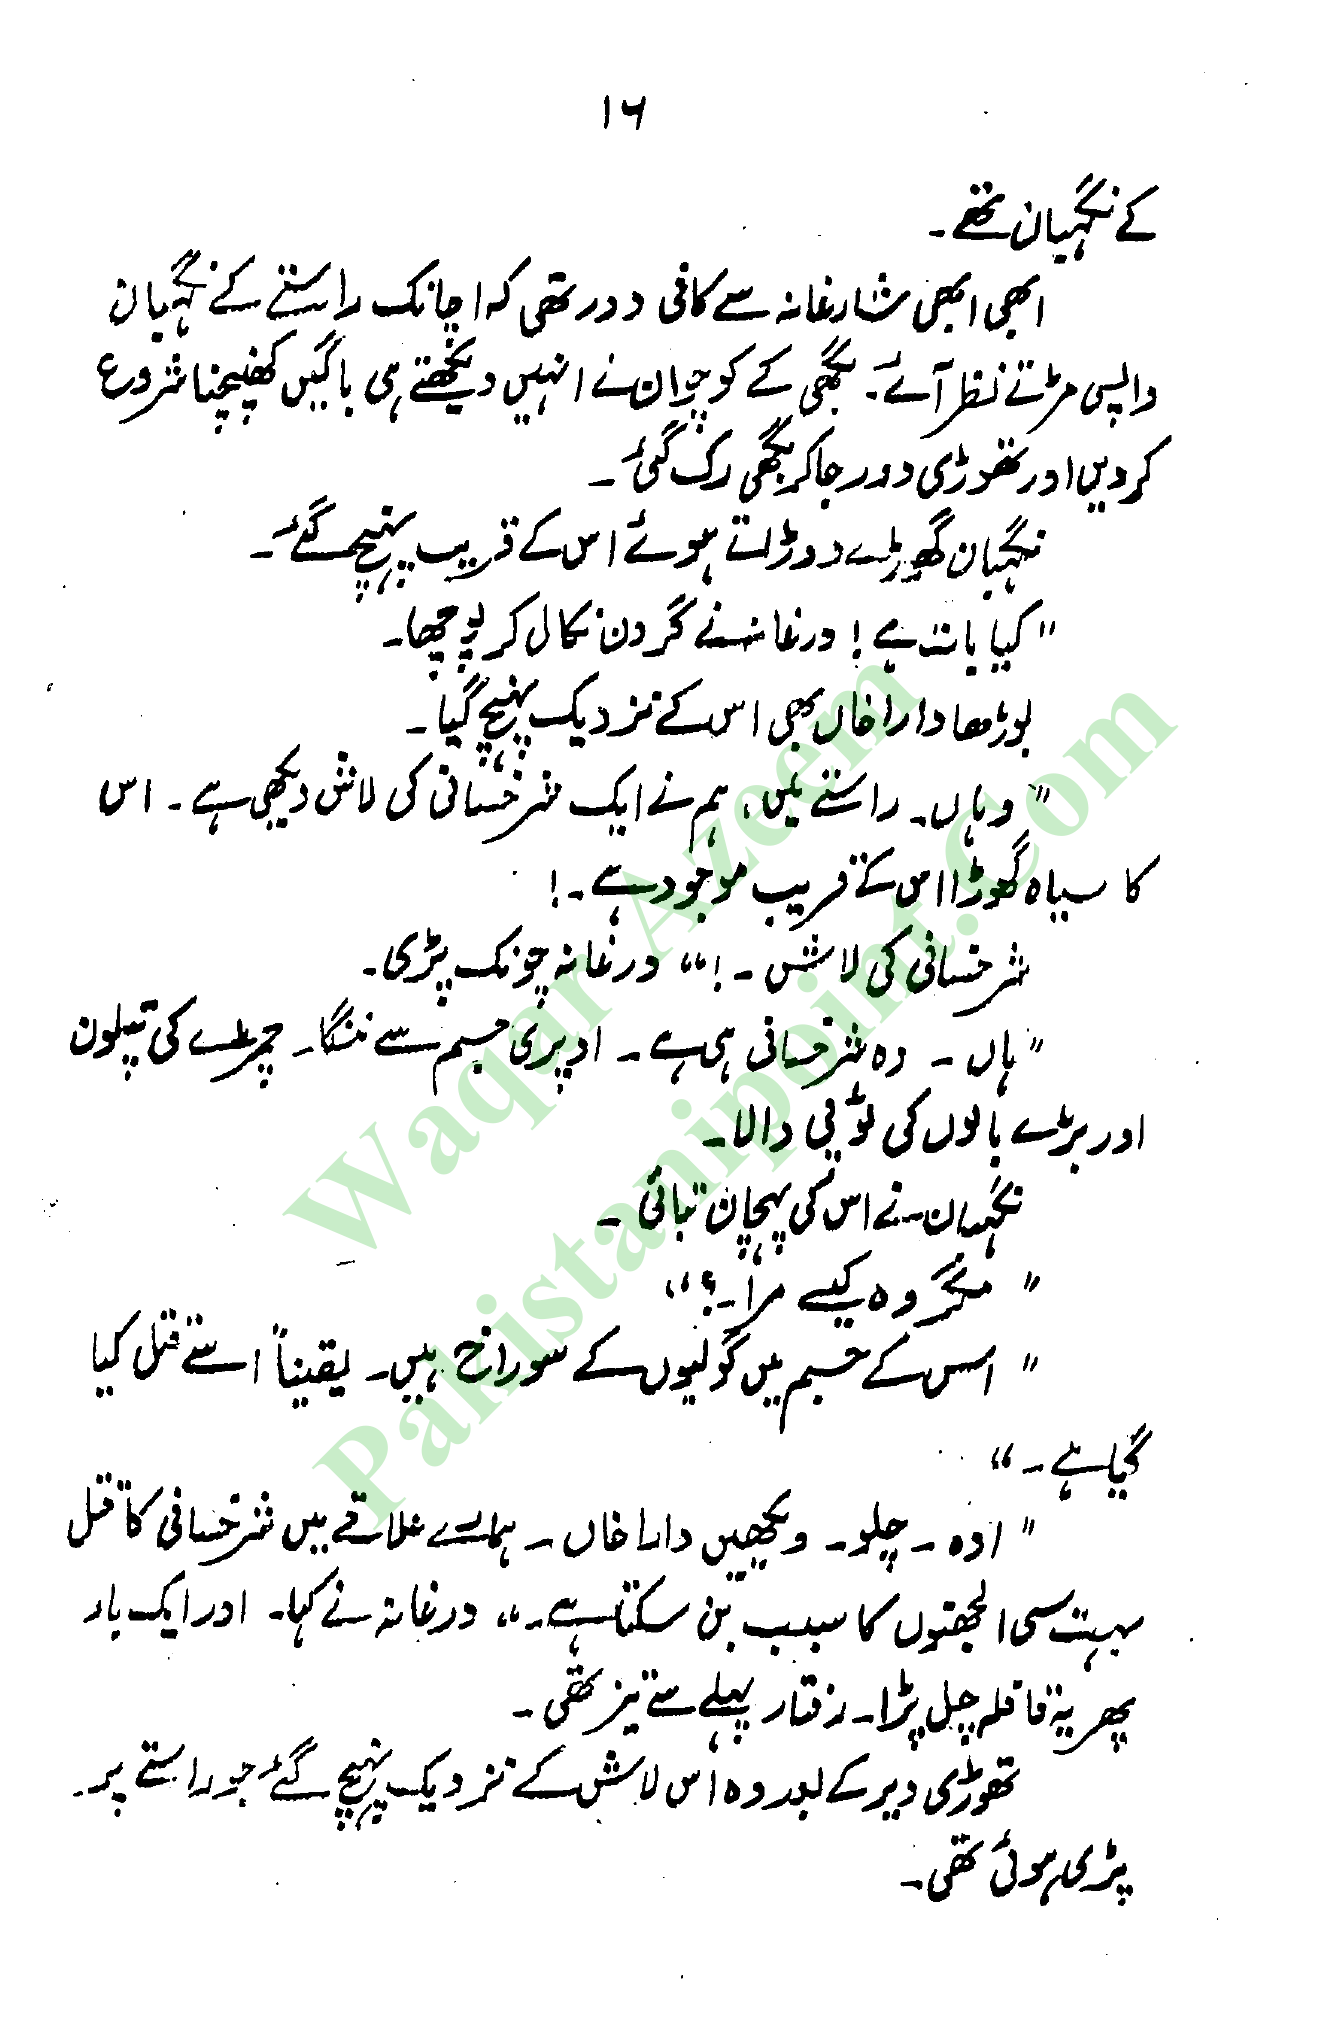 ۱۶
کے نگہبان تھے۔
ابھی ابھی شارغانہ سے کافی دور تھی کہ اچانک راستے کے نگہبان
واپس مڑتے نظر آئے۔ بگھی کے کوچوان نے انہیں دیکھتے ہی باگیں کھینچنا شروع
کر دیں اور تھوڑی دور جا کر بگھی رک گئی۔
نگہبان گھوڑے دوڑاتے ہوئے اس کے قریب پہنچ گئے۔
"کیا بات ہے! درغانہ نے گردن نکال کر پوچھا۔
بوڑھا دارا خاں بھی اس کے نزدیک پہنچ گیا۔
"وہاں۔ راستے میں، ہم نے ایک شرخسانی کی لاش دیکھی ہے۔ اس
کا سیاہ گھوڑا اس کے قریب موجود ہے۔!
شرخسانی کی لاش۔!" درغانہ چونک پڑی۔
"ہاں۔ وہ شرخسانی ہی ہے۔ اوپری جسم سے ننگا۔ چمڑے کی پتلون
اور بڑے بالوں کی ٹوپی والا۔
نگہبان نے اس کی پہچان بتائی۔
"مگر وہ کیسے مرا۔؟"
"اس کے جسم میں گولیوں کے سوراخ ہیں۔ یقیناً اسے قتل کیا
گیا ہے۔"
"اوہ۔ چلو۔ دیکھیں دارا خاں۔ ہمارے علاقے میں شرخسانی کا قتل
بہت سی الجھنوں کا سبب بن سکتا ہے۔" درغانہ نے کہا۔ اور ایک بار
پھر یہ قافلہ چل پڑا۔ رفتار پہلے سے تیز تھی۔
تھوڑی دیر کے بعد وہ اس لاش کے نزدیک پہنچ گئے جو راستے پر۔
پڑی ہوئی تھی۔
Waqar Azeem
Pakistanipoint.Com